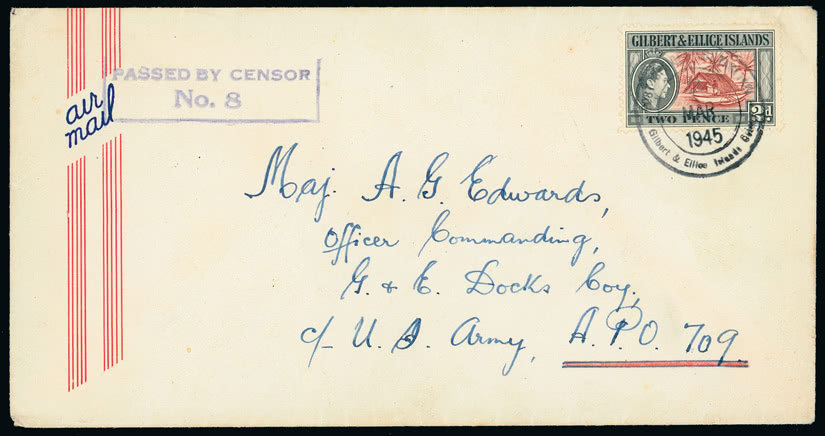 air
mail
PASSED BY CENSOR
No. 8
GILBERT & ELLICE ISLANDS
TWO PENCE
2d
MAR
1945
Gilbert & Ellice Islands
Maj. A. G. Edwards,
Officer Commanding,
G. & E. Docks Coy,
c/- U.S. Army, A.P.O. 709.